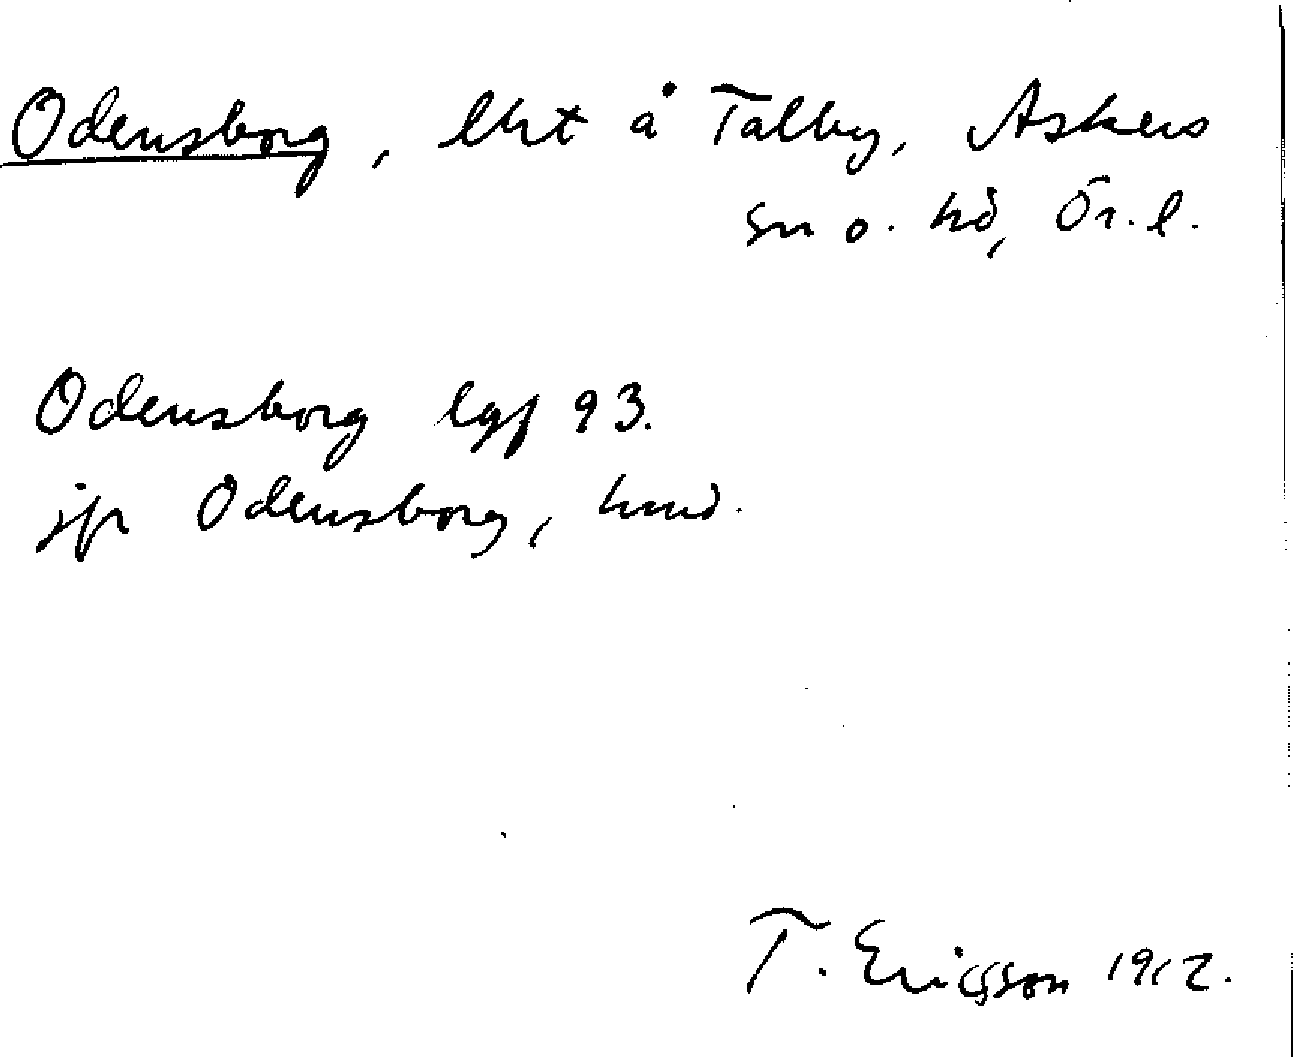 Odensborg, lht å Talby, Askers
sn o. hd, Ör. l.
Odensborg lgf 93.
jfr Odensborg, hmd.
T. Ericsson 1912.